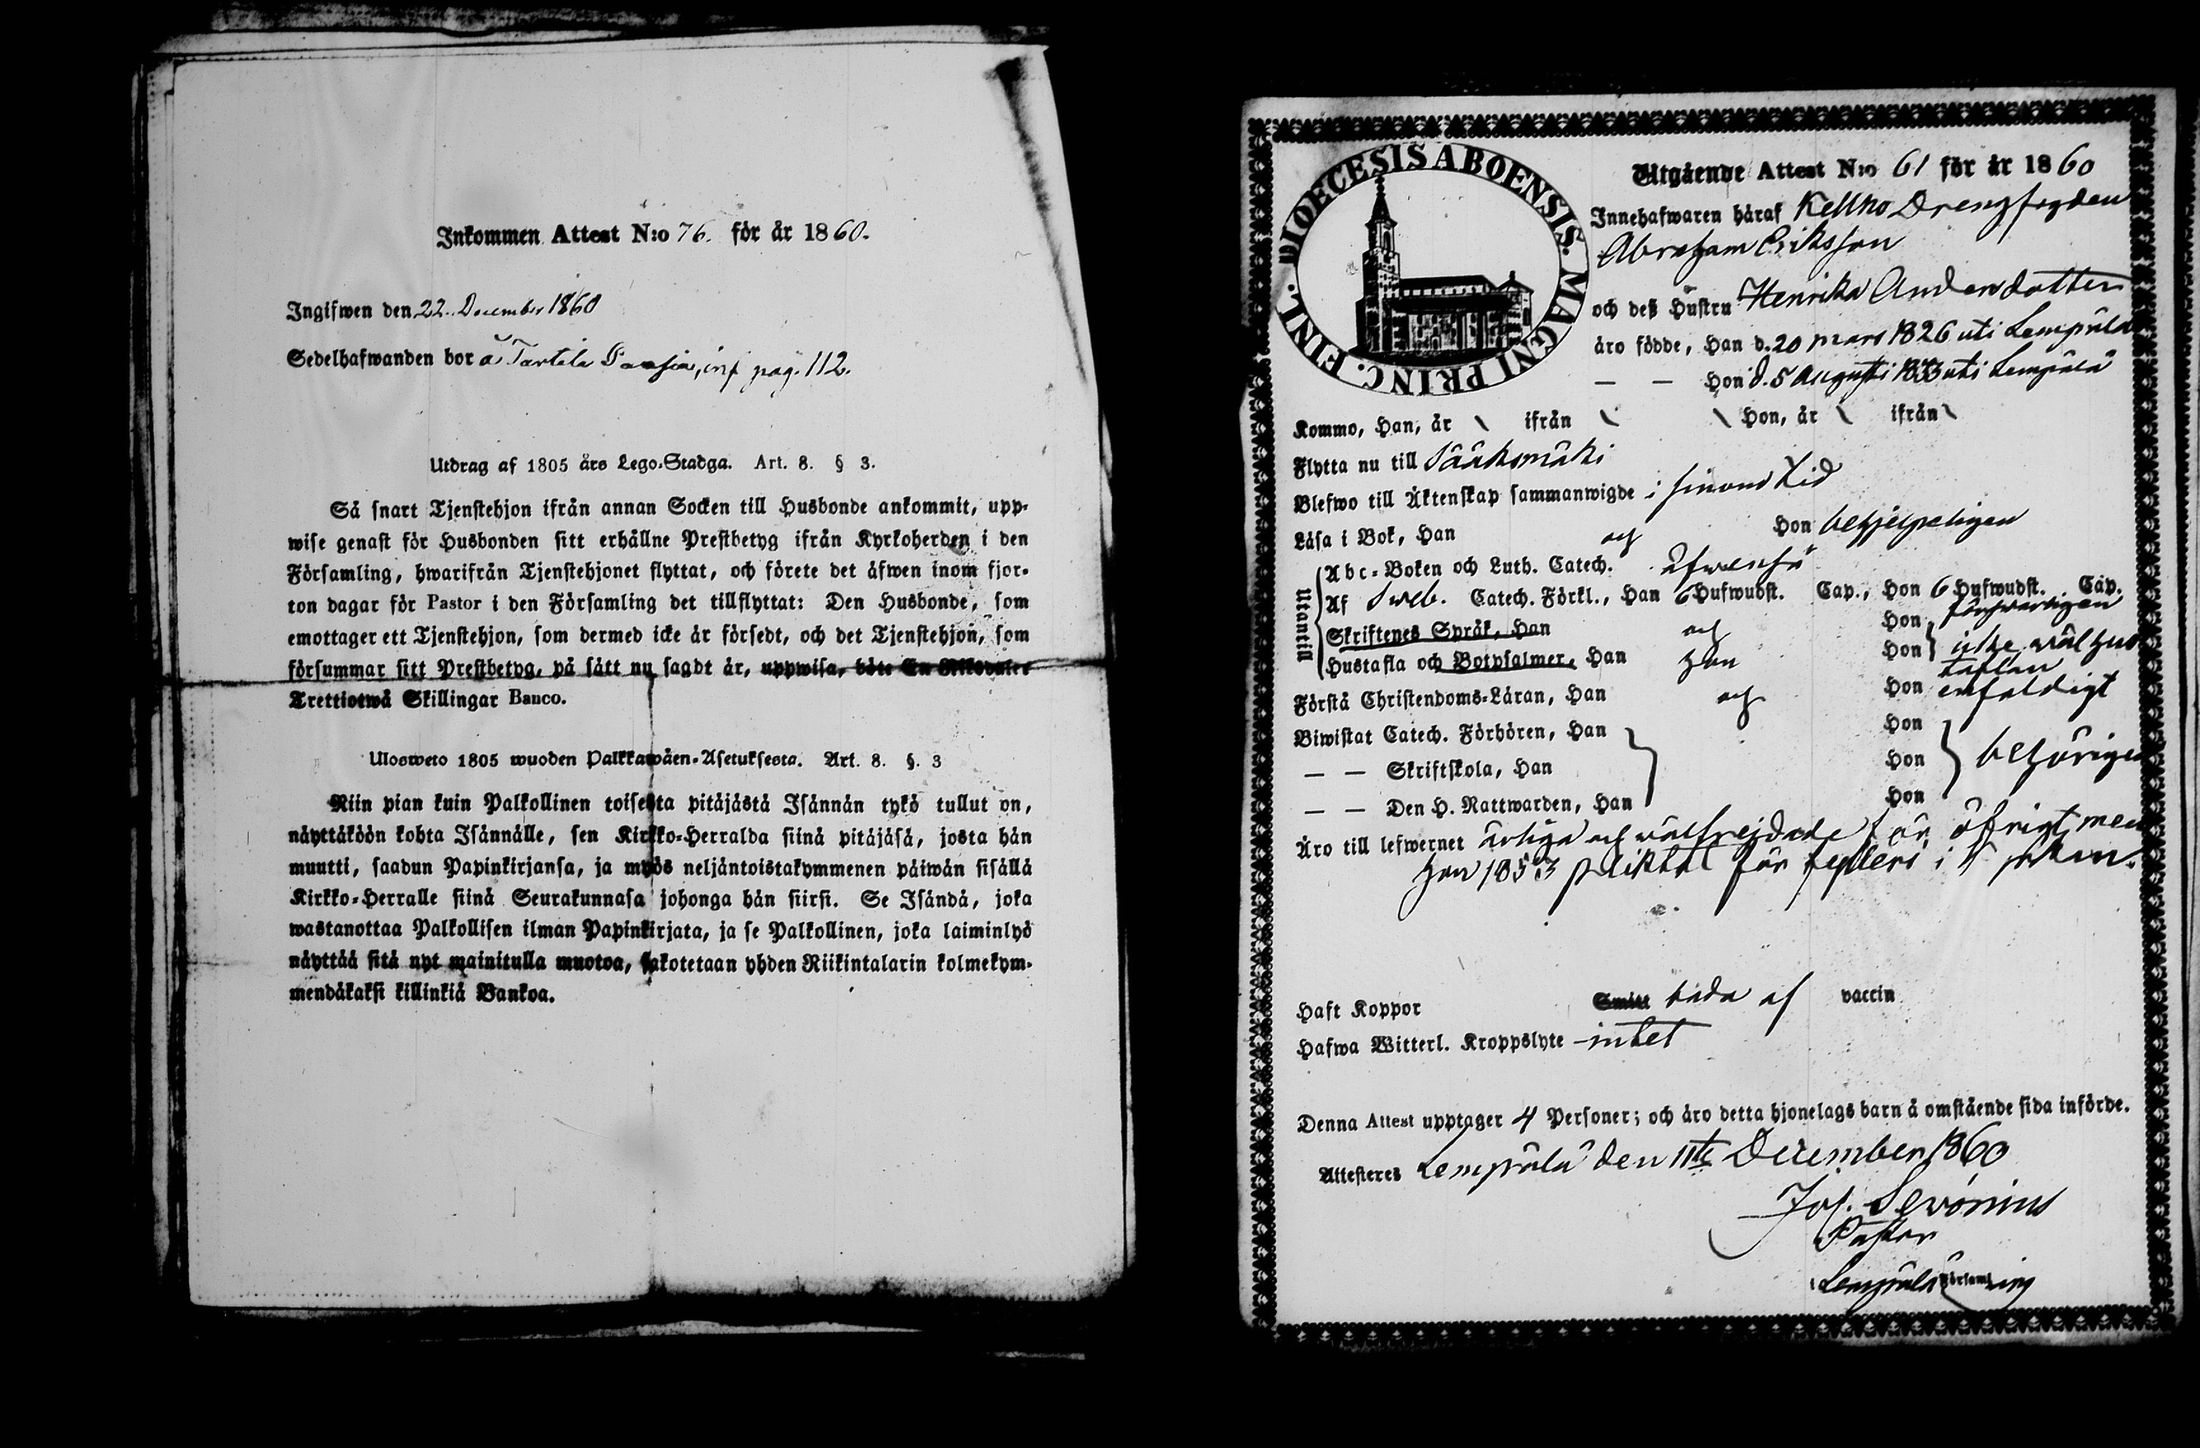 Inkommen Attest N:o 76. för år 1860.
Ingifwen den 22. December 1860
Sedelhafwanden bor å Tarttila inf pag. 112.
Utdrag af 1805 års Lego-Stadga. Art. 8. § 3.
Så snart Tjenstehjon ifrån annan Socken till Husbonde ankommit, upp-
wise genast för Husbonden sitt erhållne Prestbetyg ifrån Kyrkoherden i den
Församling, hwarifrån Tjenstehjonet flyttat, och förete det äfwen inom fjor-
ton dagar för Pastor i den Församling det tillflyttat: Den Husbonde, som
emottager ett Tjenstehjon, som dermed icke är försedt, och det Tjenstehjon, som
försummar sitt Prestbetyg, på sätt nu sagdt är, uppwisa, böte En Riksdaler
Trettiotwå Skillingar Banco.
Ulosweto 1805 wuoden Palkkawäen-Asetuksesta. Art. 8. §. 3
Niin pian kuin Palkollinen toisesta pitäjästä Isännän tykö tullut on,
näyttäköön kohta Isännälle, sen Kirkko-Herralda siinä pitäjäsä, josta hän
muutti, saadun Papinkirjansa, ja myös neljäntoistakymmenen päiwän sisällä
Kirkko-Herralle siinä Seurakunnasa johonga hän siirsi. Se Isändä, joka
wastanottaa Palkollisen ilman Papinkirjata, ja se Palkollinen, joka laiminlyö
näyttää sitä nyt mainitulla muotoa, sakotetaan yhden Riikintalarin kolmekym-
mendäkaksi killinkiä Bankoa.
DIOECESIS ABOENSIS. MAGNI PRINC. FINL.
Utgående Attest N:o 61 för år 1860
Innehafwaren häraf Kellho Drengfogden
Abraham Eriksson
och deß Hustru Henrika Andersdotter
äro födde, Han d. 20 mars 1826 uti Lempälä
— — Hon d. 5 Augusti 1833 uti Lempälä
Kommo, Han, år \ ifrån \ \ Hon, år \ ifrån \
Flytta nu till Sääksmäki
Blefwo till Äktenskap sammanwigde i sinom tid
Läsa i Bok, Han och Hon behjelpeligen
Utantill
Abc-Boken och Luth. Catech. äfwenså
Af Sveb. Catech. Förkl., Han 6 Hufwudst. Cap., Hon 6 Hufwudst. Cap.
Skriftenes Språk, Han och Hon försvarligen
Hustafla och Botpsalmer, Han Hon Hon icke wäl hus
taflan
Förstå Christendoms-Läran, Han och Hon enfaldigt
Biwistat Catech. Förhören, Han Hon
— — Skriftskola, Han Hon behörigen
— — Den H. Nattwarden, Han Hon
Äro till lefwernet ärliga och wälfrejdade för öfrigt, men
hon 1853 pliktat för i
Haft Koppor Smitt båda af vaccin
Hafwa Witterl. Kroppslyte intet
Denna Attest upptager 4 Personer; och äro detta hjonelags barn å omstående sida införde.
Attesteres Lempälä den 11te December 1860
Jos. Servonius
Pastor
i Lempälä Församling